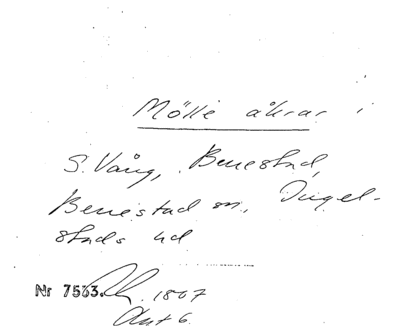 Mölle åkrar i
S. Vång, Benestad,
Benestad sn, Ingel-
stads hd
Nr 7563. 1807
Akt 6.